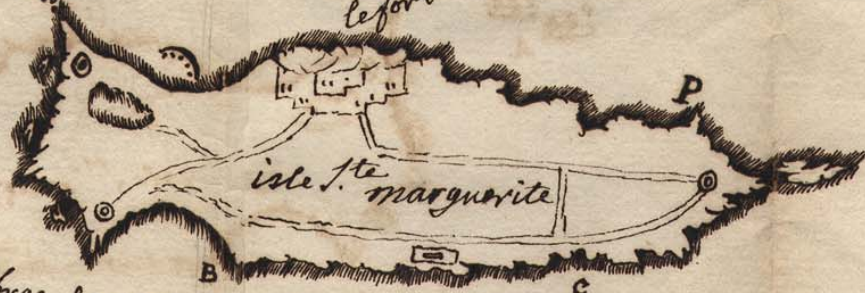 le fort
P
isle S.te marguerite
B
C